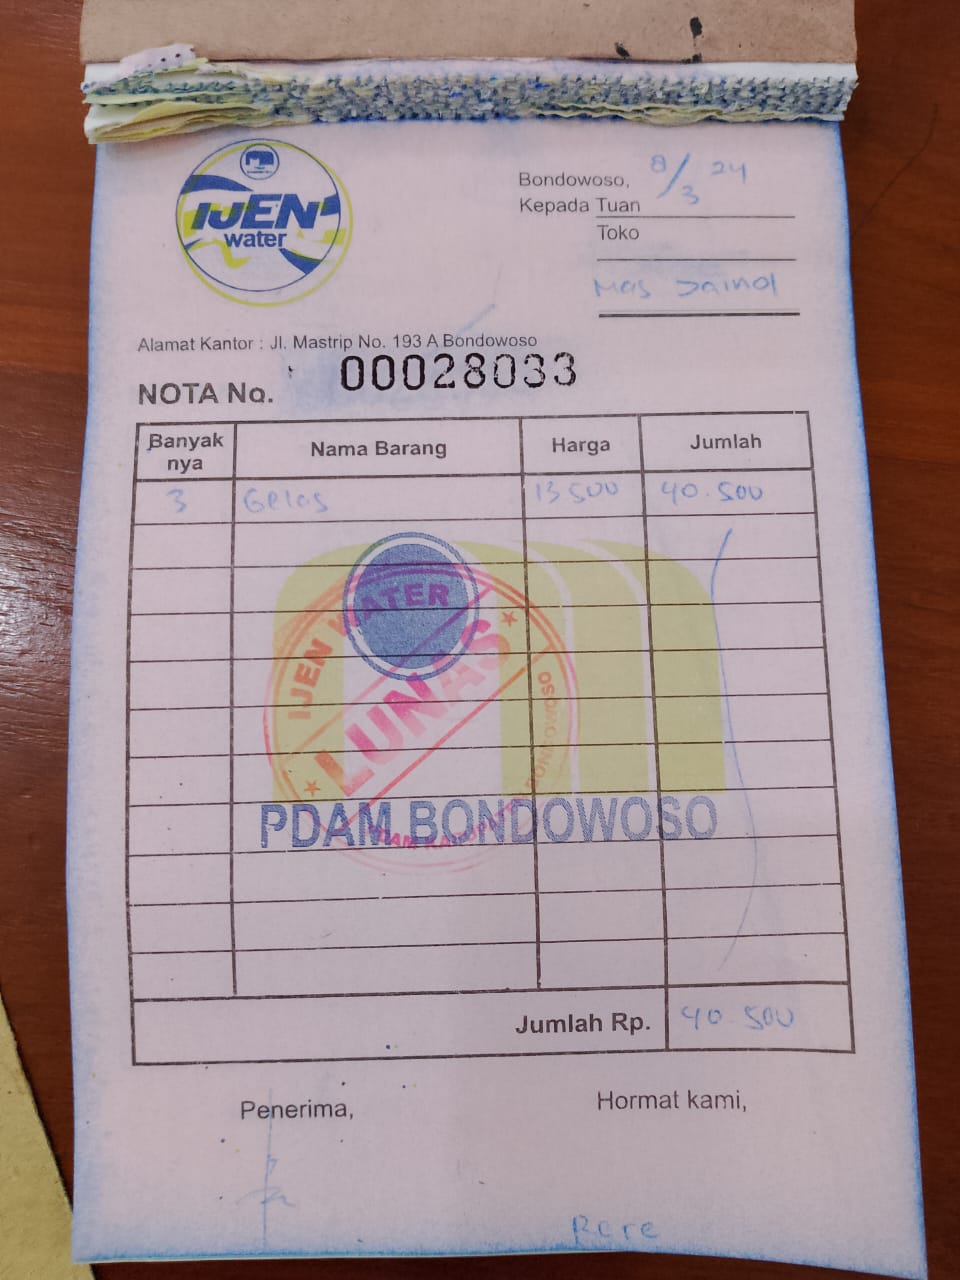 IJEN
water
Bondowoso, 8/3 24
Kepada Tuan
Toko
Mas Jainol
Alamat Kantor : Jl. Mastrip No. 193 A Bondowoso
NOTA No. 00028033
Banyak nya Nama Barang Harga Jumlah
3 Gelas 13 500 40.500
IJEN WATER
LUNAS
PDAM KABUPATEN BONDOWOSO
PDAM BONDOWOSO
Jumlah Rp. 40.500
Penerima, Hormat kami,
Rere